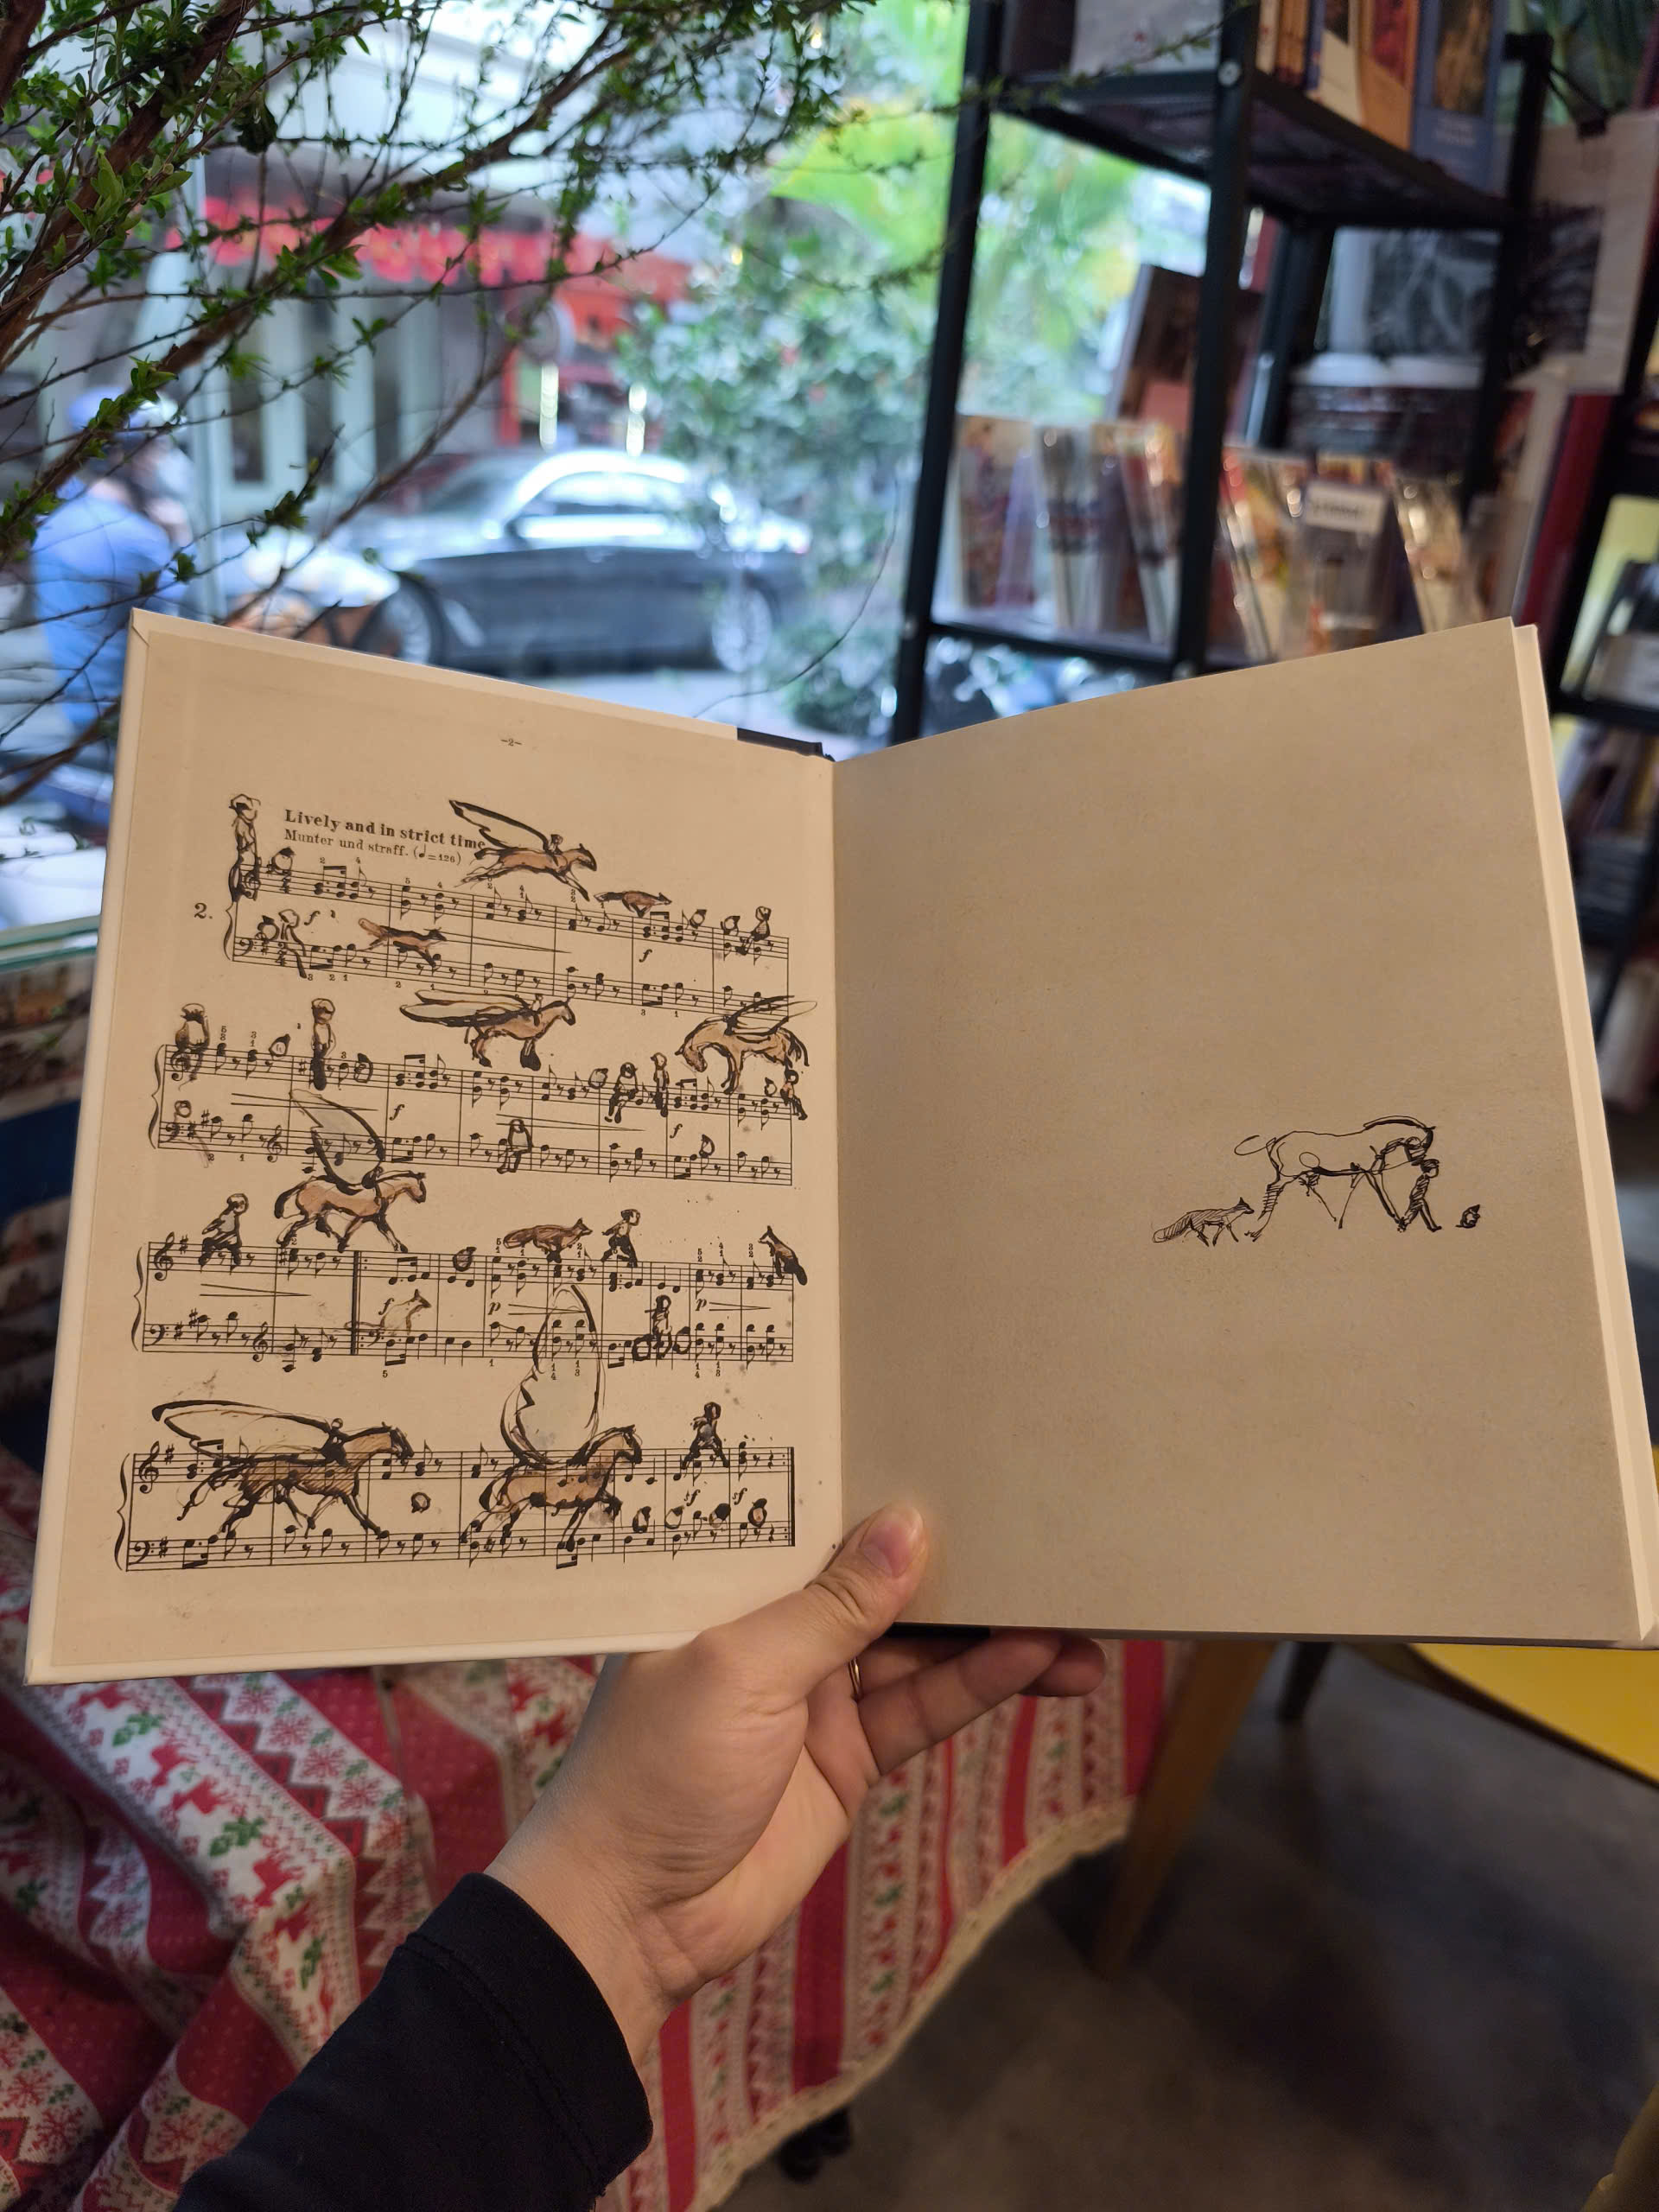 –2–
Lively and in strict time
Munter und straff. (♩=126)
2.
f
f
f
f
f
p
p
sf
sf